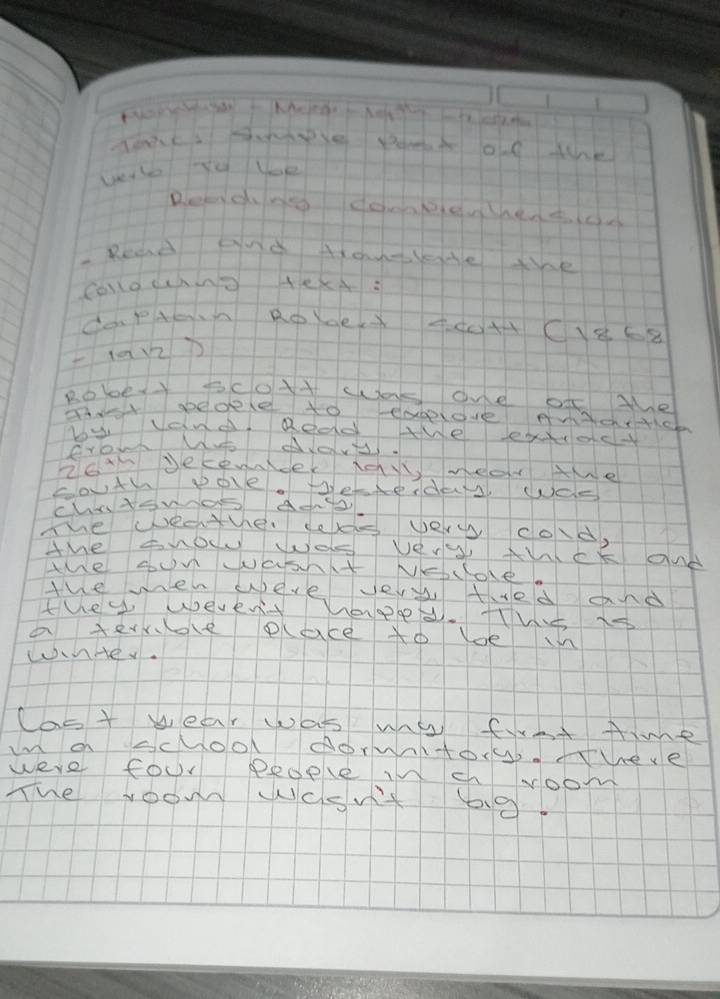 Topic: Simple Past of the
verb to be
Reading comprenhension
- Read and translate the
following text:
Captain Robert Scott (1868
- 1912)
Robert Scott was one of the
first people to explore Antartica
by land. Read the extract
from his diary.
26th December 1911, near the
south pole. Yesterday was
chritsmas day.
The weather was very cold,
the snow was very thick and
the sun wasn't visible.
the men were very tired and
they weren't happy. This is
a terrible place to be in
winter.
Last year was my first time
in a school dormitory. There
were four people in a room
The room wasn't big.